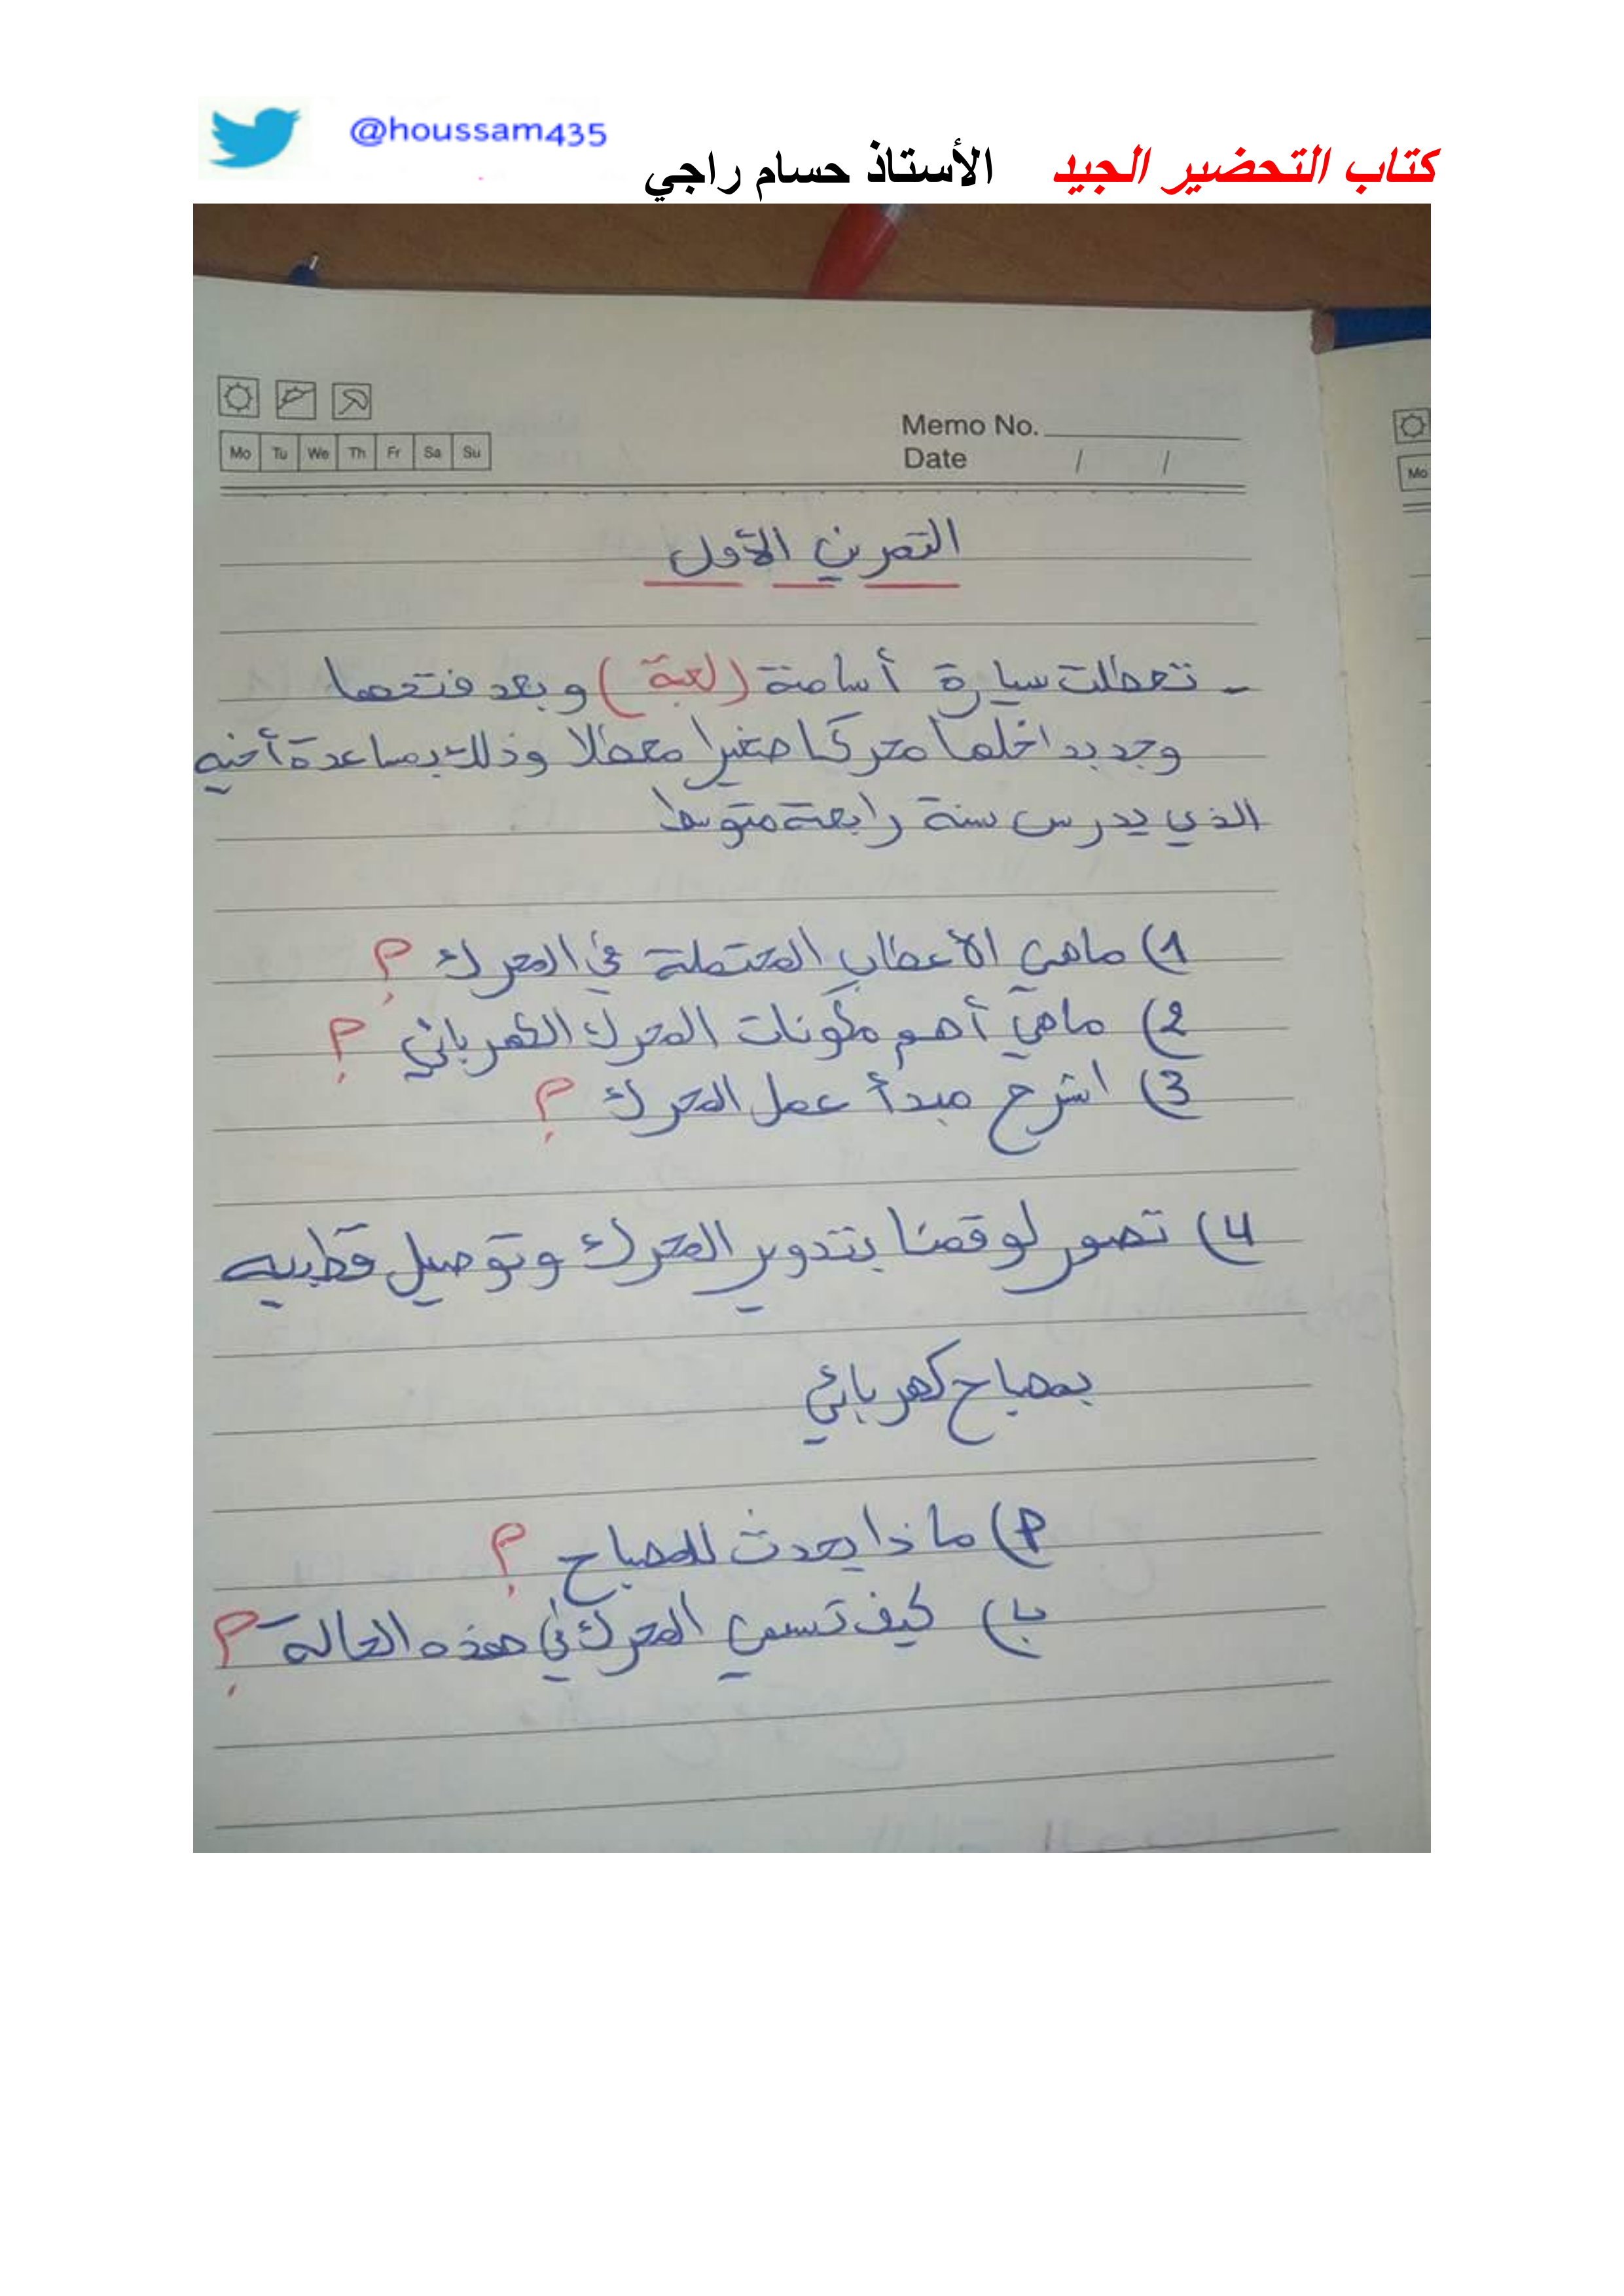 @houssam435
كتاب التحضير الجيد الأستاذ حسام راجي
Memo No.
Mo Tu We Th Fr Sa Su
Date / /
Mo
التمرين الأول
- تعطلت سيارة أسامة (لعبة) و بعد فتحها
وجد بداخلها محركا صغيرا معطلا وذلك بمساعدة أخيه
الذي يدرس سنة رابعة متوسط
1) ماهي الأعطاب المحتملة في المحرك ؟
2) ماهي أهم مكونات المحرك الكهربائي ؟
3) اشرح مبدأ عمل المحرك ؟
4) تصور لو قمنا بتدوير المحرك وتوصيل قطبيه
بمصباح كهربائي
أ) ماذا يحدث للمصباح ؟
ب) كيف تسمي المحرك في هذه الحالة ؟